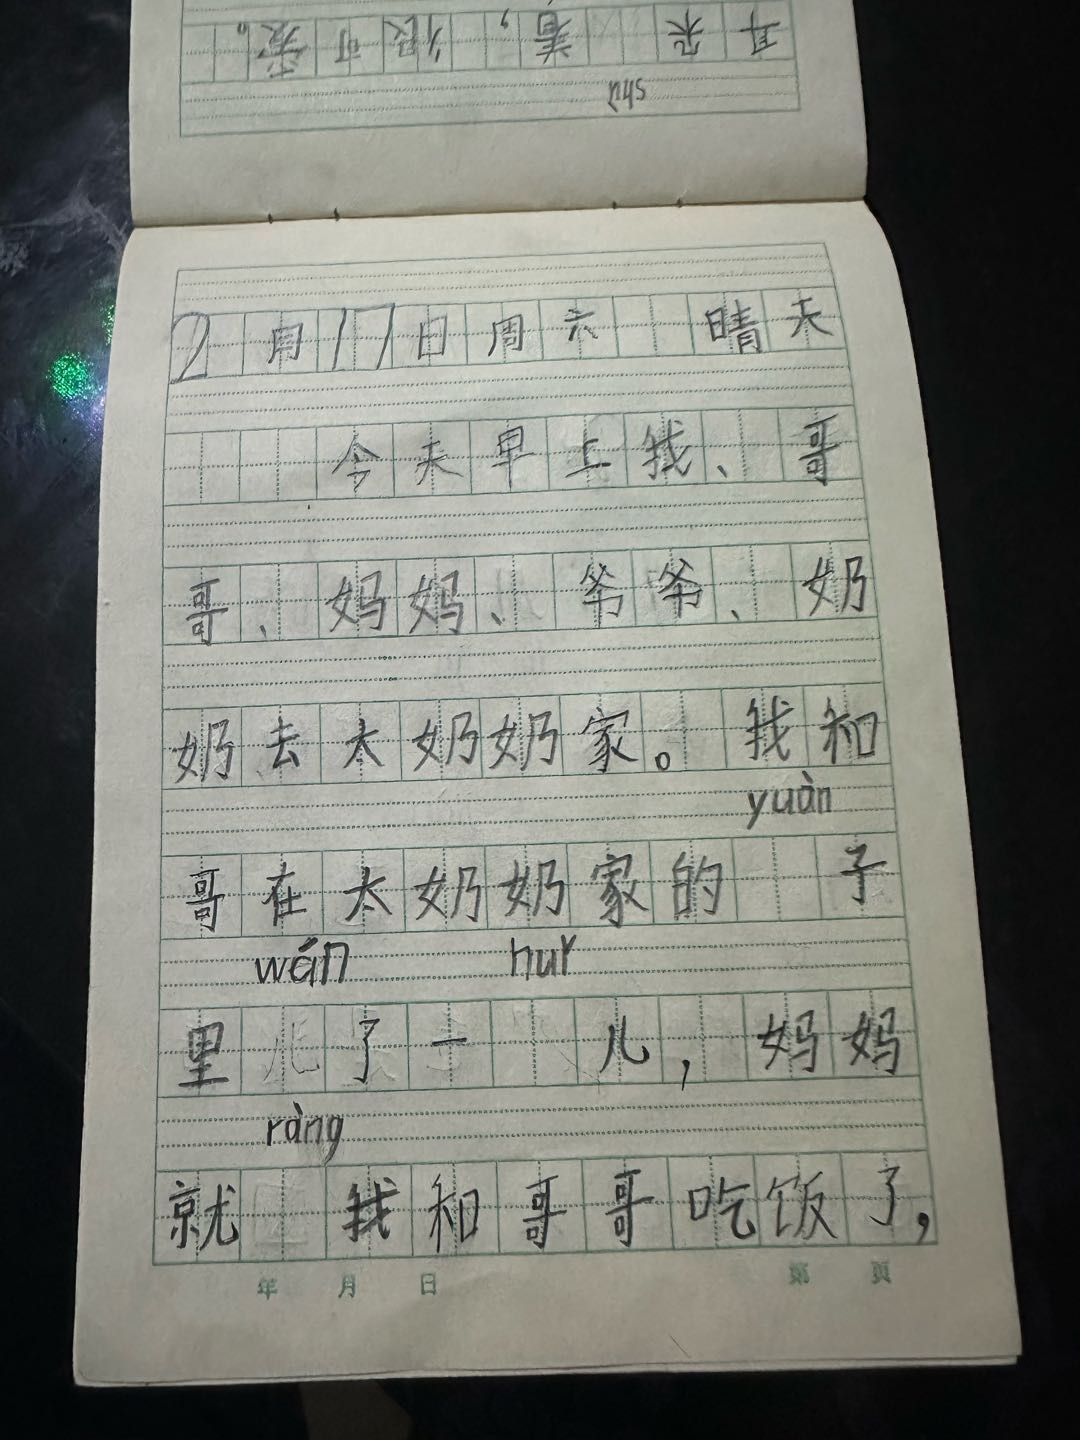 耳朵 着，很可爱。
shù
2月17日周六 晴天
今天早上我、哥
哥、妈妈、爷爷、奶
奶去太奶奶家。我和
yuàn
哥在太奶奶家的 子
wán hur
里 了一 儿，妈妈
ràng
就 我和哥哥吃饭了，
年 月 日 第 页